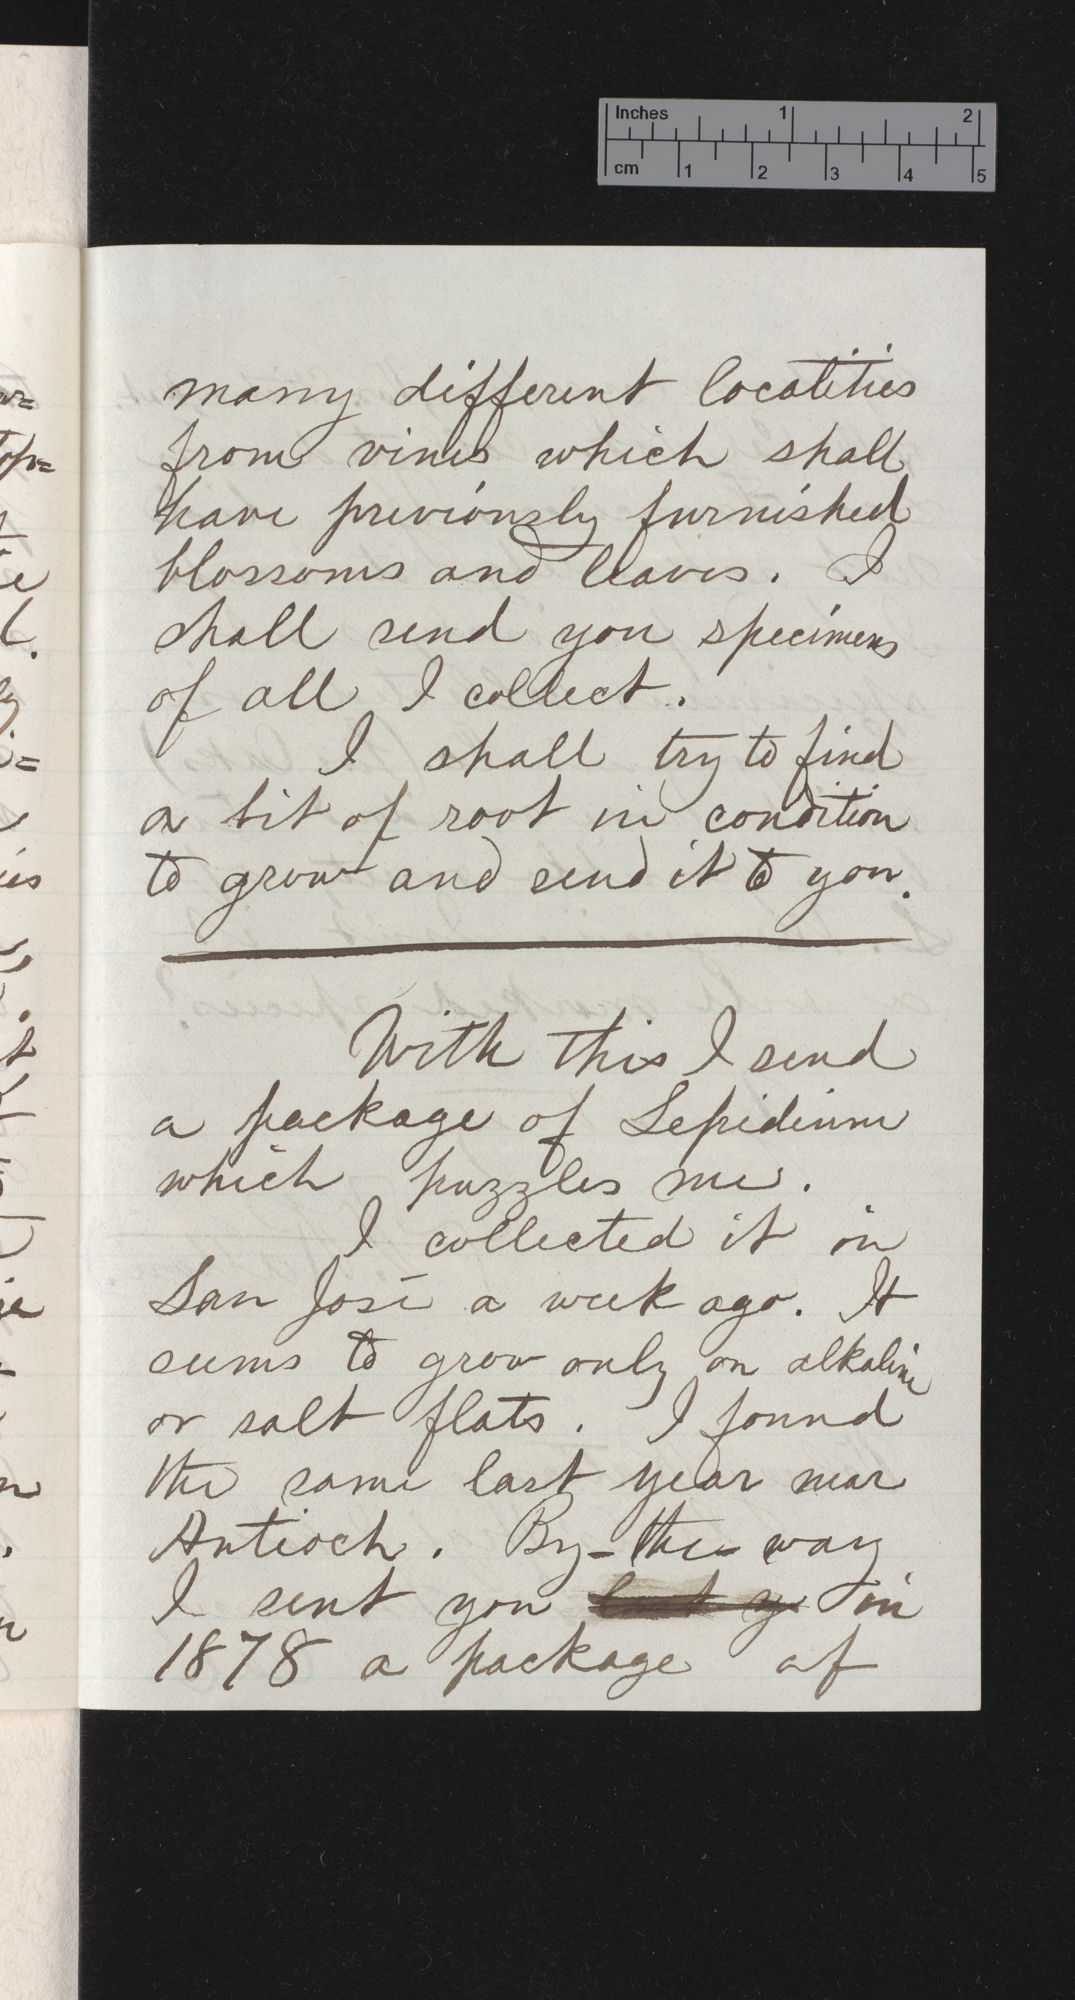 Inches 1 2
cm 1 2 3 4 5
many different localities
from vines which shall
have previously furnished
blossoms and leaves. I
shall send you specimens
of all I collect.
I shall try to find
a bit of root in condition
to grow and send it to you.
With this I send
a package of Lepidium
which puzzles me.
I collected it in
San José a week ago. It
seems to grow only on alkaline
or salt flats. I found
the same last year near
Antioch. By-the-way
I sent you last y in
1878 a package of